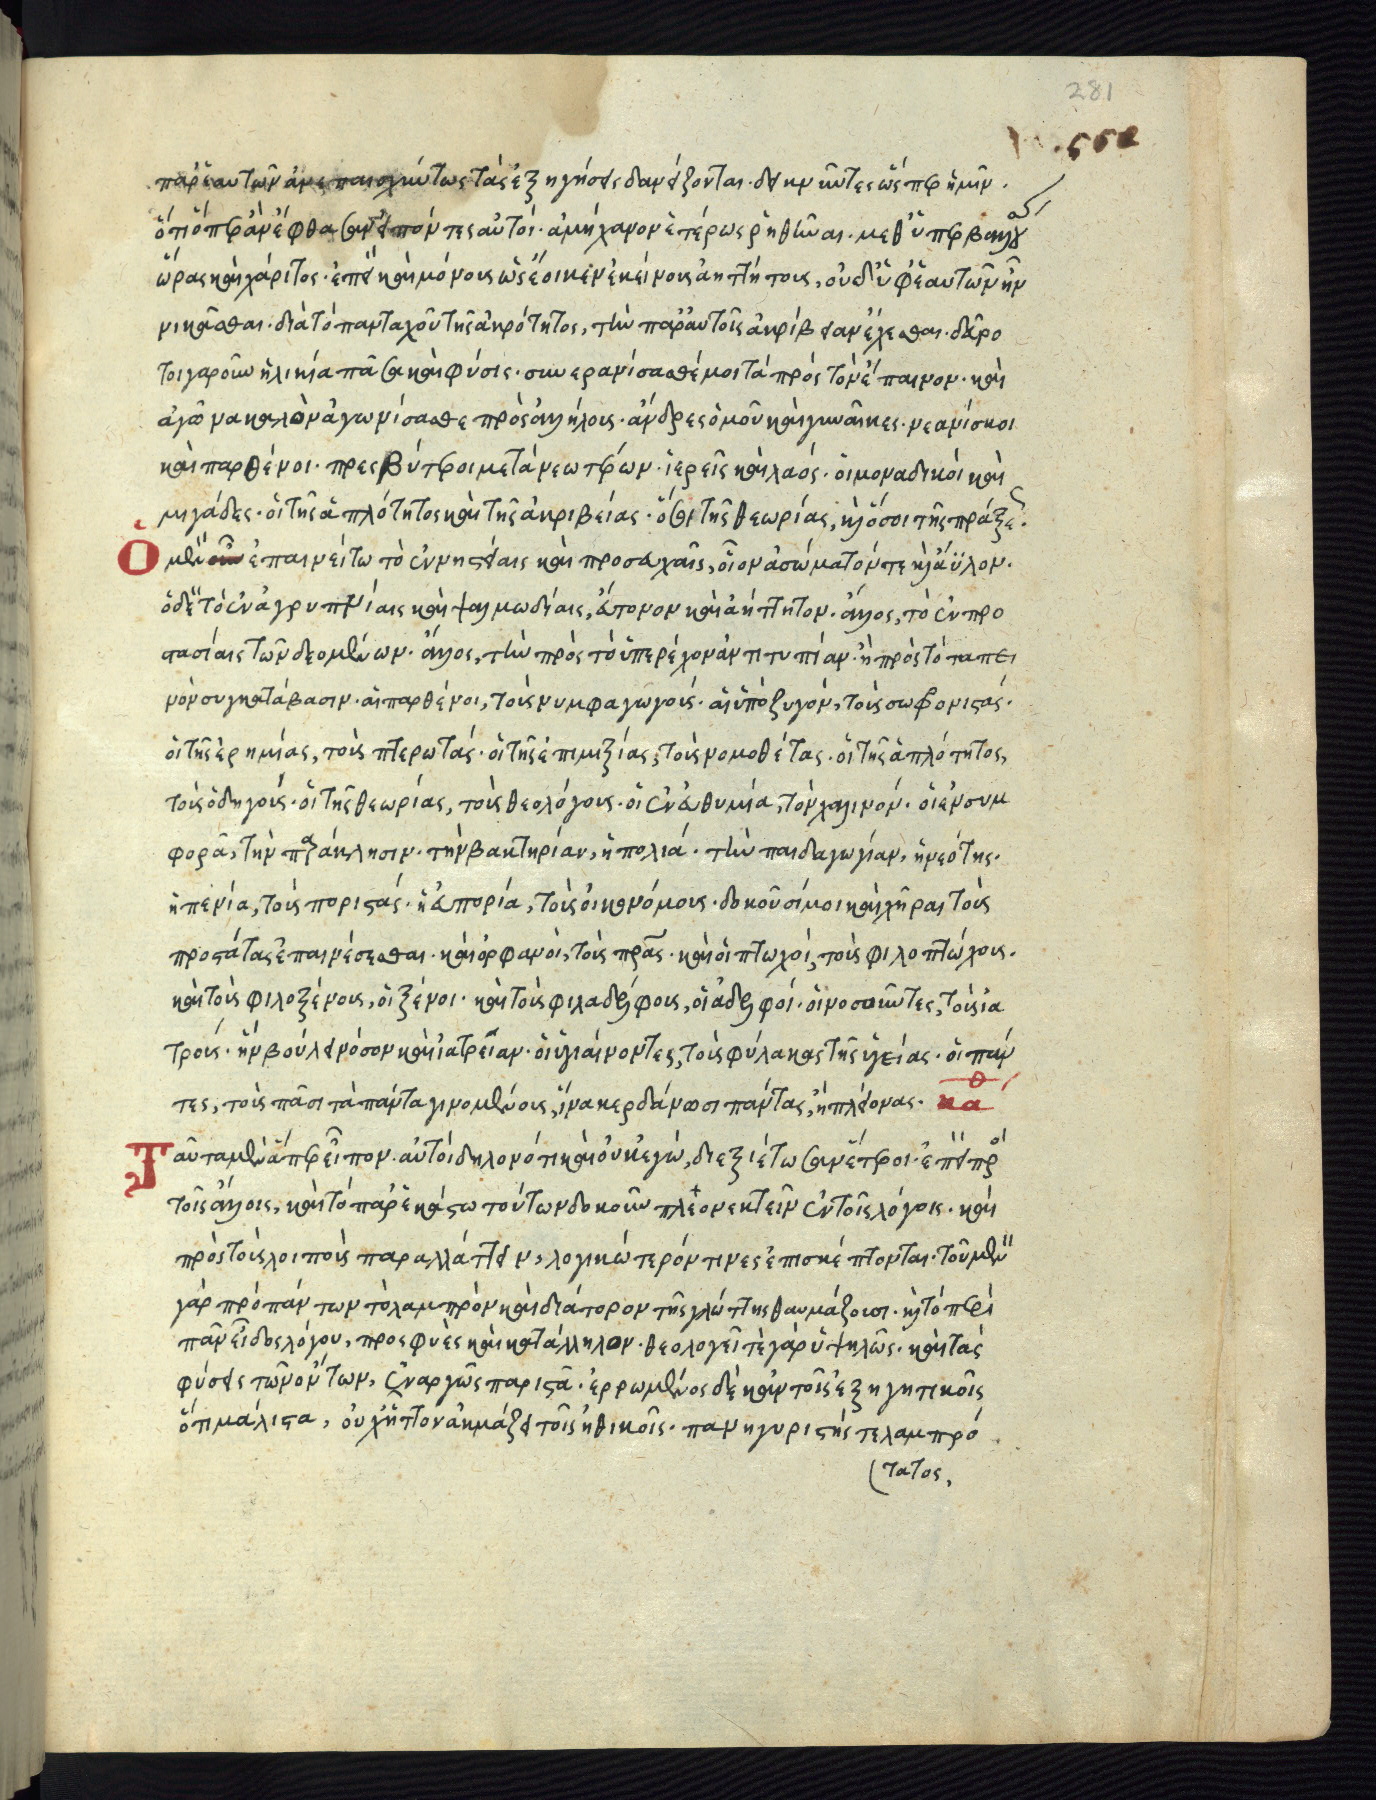 παρ' ἑαυτῶν ἀνεπαισχύντως τὰς ἐξηγήσεις δανείζονται· δεικνῦντες ὥσπερ ἡμῖν·
ὅτι ὅπερ ἂν ἔφθασαν εἰπόντες αὐτοί· ἀμήχανον ἑτέρως ῥηθῆναι· μεθ' ὑπερβαλλούσης
ὥρας καὶ χάριτος· ἐπεὶ καὶ μόνοις ὡς ἔοικεν ἐκείνοις ἀηττήτοις, οὐδ' ὑφ' ἑαυτῶν ἦν
νικᾶσθαι· διὰ τὸ πανταχοῦ τῆς ἀκρότητος, τὴν παρ' αὐτοῖς ἀκρίβειαν ἔχεσθαι· δεῦρο
τοιγαροῦν ἡλικία πᾶσα καὶ φύσις· συνερανίσασθέ μοι τὰ πρὸς τὸν ἔπαινον· καὶ
ἀγῶνα καλὸν ἀγωνίσασθε πρὸς ἀλλήλους· ἄνδρες ὁμοῦ καὶ γυναῖκες· νεανίσκοι
καὶ παρθένοι· πρεσβύτεροι μετὰ νεωτέρων· ἱερεῖς καὶ λαός· οἱ μοναδικοὶ καὶ
μιγάδες· οἱ τῆς ἁπλότητος καὶ τῆς ἀκριβείας· ὅσοι τῆς θεωρίας, καὶ ὅσοι τῆς πράξεως·
Ὁ μὲν οὖν ἐπαινείτω τὸ ἐν νηστείαις καὶ προσευχαῖς, οἷον ἀσώματόν τε καὶ ἄϋλον·
ὁ δὲ τὸ ἐν ἀγρυπνίαις καὶ ψαλμωδίαις, εὔτονον καὶ ἀήττητον· ἄλλος, τὸ ἐν προ
στασίαις τῶν δεομένων· ἄλλος, τὴν πρὸς τὸ ὑπερέχον ἀντιτυπίαν· ἢ πρὸς τὸ ταπει
νὸν συγκατάβασιν· αἱ παρθένοι, τοὺς νυμφαγωγούς· αἱ ὑπὸ ζυγόν, τοὺς σωφρονιστάς·
οἱ τῆς ἐρημίας, τοὺς πτερωτάς· οἱ τῆς ἐπιμιξίας, τοὺς νομοθέτας· οἱ τῆς ἁπλότητος,
τοὺς ὁδηγούς· οἱ τῆς θεωρίας, τοὺς θεολόγους· οἱ ἐν εὐθυμία, τὸν χαλινόν· οἱ ἐν συμ
φορᾶ, τὴν παράκλησιν· τὴν βακτηρίαν, ἡ πολιά· τὴν παιδαγωγίαν, ἡ νεότης·
ἡ πενία, τοὺς ποριστάς· ἡ εὐπορία, τοὺς οἰκονόμους· δοκοῦσί μοι καὶ χῆραι τοὺς
προστάτας ἐπαινέσεσθαι· καὶ ὀρφανοὶ, τοὺς πρας· καὶ οἱ πτωχοὶ, τοὺς φιλοπτώχους·
καὶ τοὺς φιλοξένους, οἱ ξένοι· καὶ τοὺς φιλαδέλφους, οἱ ἀδελφοί· οἱ νοσοῦντες, τοὺς ἰα
τρούς· ἣν βούλει νόσον καὶ ἰατρείαν· οἱ ὑγιαίνοντες, τοὺς φύλακας τῆς ὑγείας· οἱ πάν
τες, τοὺς πᾶσι τὰ πάντα γινομένους, ἵνα κερδάνωσι πάντας, ἢ πλείονας·
Ταῦτα μὲν ἅπερ εἶπον· αὐτοὶ δηλονότι καὶ οὐκ ἐγώ, διεξιέτωσαν ἕτεροι· ἐπεὶ πρὸς
τοῖς ἄλλοις, καὶ τὸ παρ' ἑκάστω τούτων δοκοῦν πλεονεκτεῖν ἐν τοῖς λόγοις· καὶ
πρὸς τοὺς λοιποὺς παραλλάττειν, λογικώτερόν τινες ἐπισκέπτονται· τοῦ μὲν
γὰρ πρὸ πάντων τὸ λαμπρὸν καὶ διάτορον τῆς γλώττης θαυμάζουσι· καὶ τὸ περὶ
πᾶν εἶδος λόγου, προσφυὲς καὶ κατάλληλον· θεολογεῖ τὲ γὰρ ὑψηλῶς· καὶ τὰς
φύσεις τῶν ὄντων, ἐναργῶς παριστᾶ· ἐρρωμένος δὲ κἀν τοῖς ἐξηγητικοῖς
ὅτι μάλιστα, οὐχ ἧττον ἀκμάζει τοῖς ἠθικοῖς· πανηγυριστής τε λαμπρό
τατος,
281